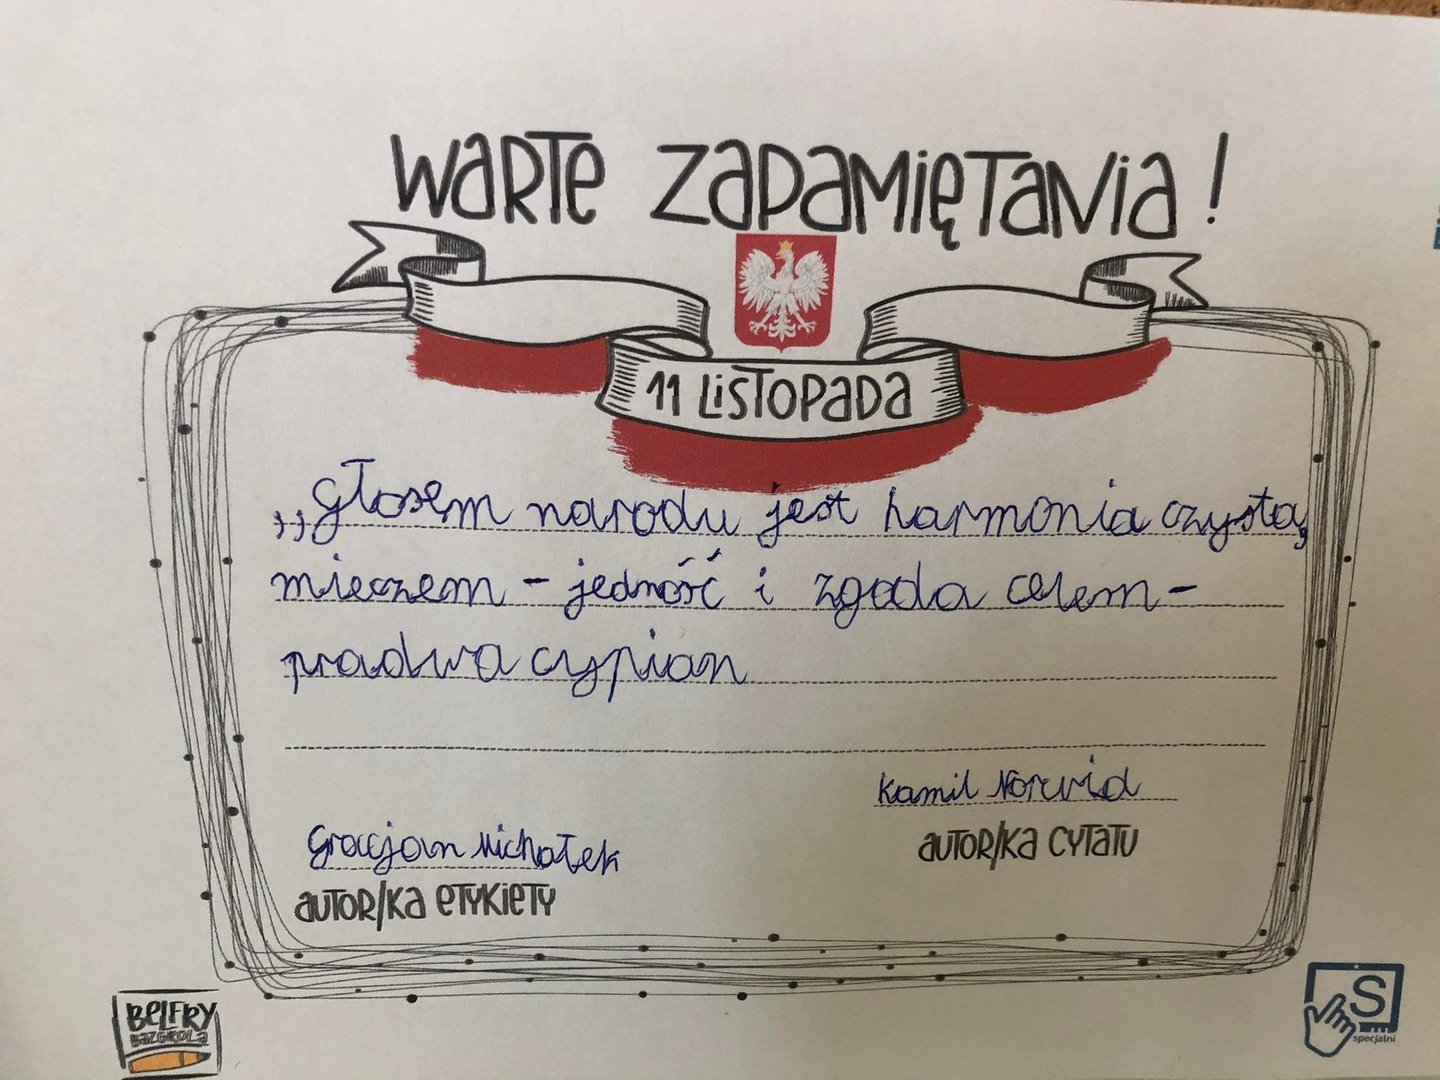 WARTE ZAPAMIĘTANIA!
11 LISTOPADA
,,Głosem narodu jest harmonia czysta,
mieczem - jedność i zgoda celem -
pradwa cypian
Kamil Norwid
AUTOR/KA CYTATU
Gracjan Michałek
AUTOR/KA ETYKIETY
BELFRY
BAZGROLA
S
specjalni